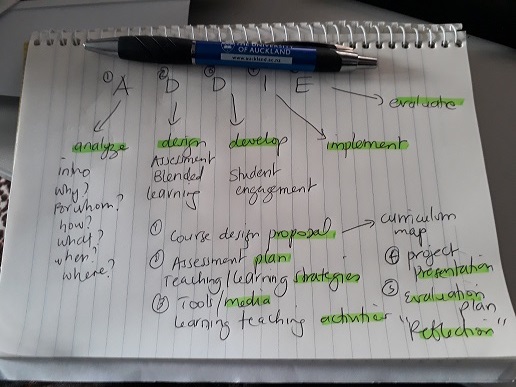 THE UNIVERSITY
OF AUCKLAND
www.auckland.ac.nz
① A ② D ③ D ④ I E
evaluate
analyze design develop implement
intro
why?
For whom?
how?
what?
when?
where?
Assessment
Blended
learning
Student
engagement
① Course design proposal → curriculum
map
② Assessment plan
Teaching/learning strategies
③ Tools/media
learning teaching activities
④ project
presentation
⑤ Evaluation
plan
"Reflection"